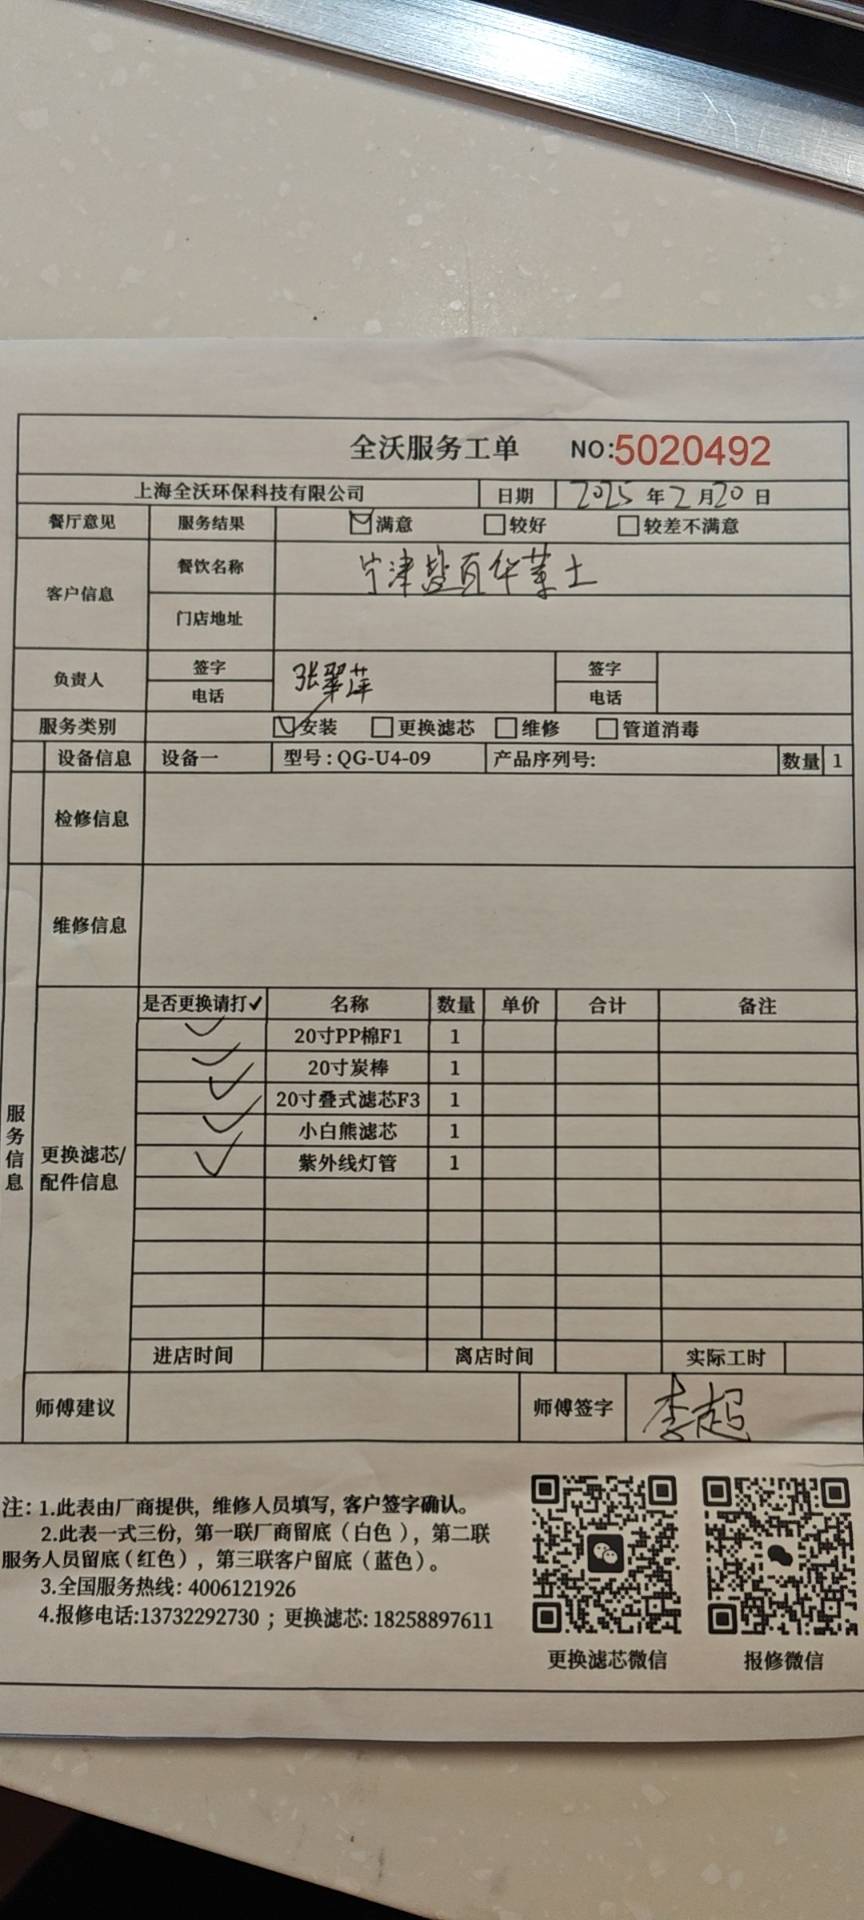 全沃服务工单 NO:5020492
上海全沃环保科技有限公司 日期 2025年2月20日
餐厅意见 服务结果 满意 较好 较差不满意
客户信息 餐饮名称 宁津 百华莱士
门店地址
负责人 签字 张翠萍 签字
电话 电话
服务类别 安装 更换滤芯 维修 管道消毒
设备信息 设备一 型号:QG-U4-09 产品序列号: 数量 1
检修信息
维修信息
服务信息
更换滤芯/配件信息
是否更换请打✓ 名称 数量 单价 合计 备注
✓ 20寸PP棉F1 1
✓ 20寸炭棒 1
✓ 20寸叠式滤芯F3 1
✓ 小白熊滤芯 1
✓ 紫外线灯管 1
进店时间 离店时间 实际工时
师傅建议 师傅签字 李超
注:1.此表由厂商提供,维修人员填写,客户签字确认。
2.此表一式三份,第一联厂商留底(白色),第二联
服务人员留底(红色),第三联客户留底(蓝色)。
3.全国服务热线:4006121926
4.报修电话:13732292730;更换滤芯:18258897611
更换滤芯微信 报修微信